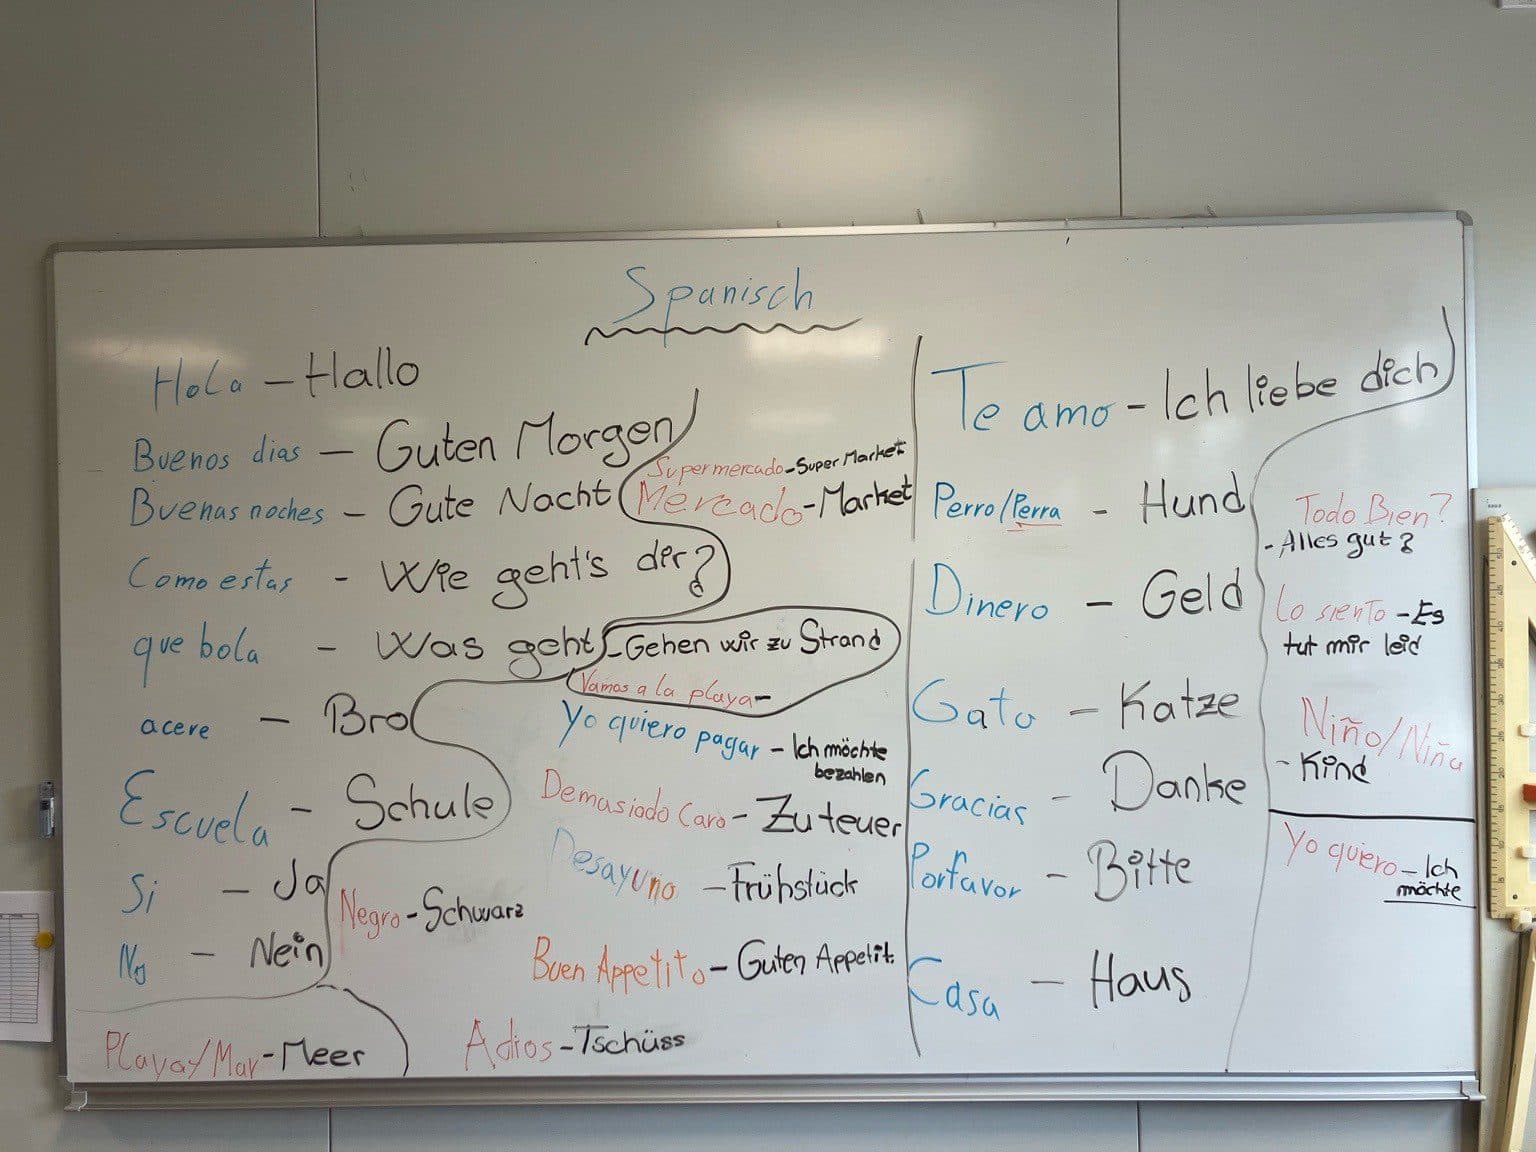 Spanisch
Hola - Hallo
Buenos dias - Guten Morgen
Buenas noches - Gute Nacht
Como estas - Wie geht's dir?
que bola - Was geht
acere - Bro
Escuela - Schule
Si - Ja
No - Nein
Playa/Mar - Meer
Supermercado - Super Market
Mercado - Market
- Gehen wir zu Strand
Vamos a la playa -
Yo quiero pagar - Ich möchte
bezahlen
Demasiado Caro - Zu teuer
Desayuno - Frühstück
Negro - Schwarz
Buen Appetito - Guten Appetit
Adios - Tschüss
Te amo - Ich liebe dich
Perro/Perra - Hund
Dinero - Geld
Gato - Katze
Gracias - Danke
Porfavor - Bitte
Casa - Haus
Todo Bien?
- Alles gut?
Lo siento - Es
tut mir leid
Niño/Niña
- Kind
Yo quiero - Ich
möchte